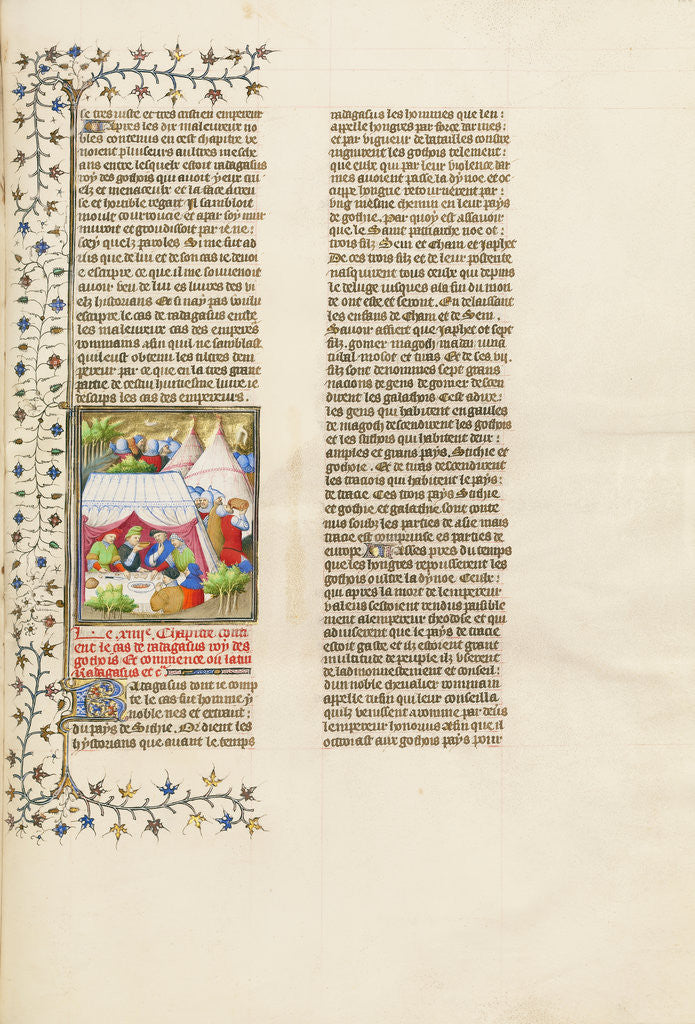 se tres iuste et tres ancien empereur
Apres les dix maleureux no
bles contenus en cest chapitre ve
noient pluseurs aultres mesche
ans entre lesquelz estoit radagasus
roy des gothois qui auoit yeux cru
elz et menaceurs et la face diteu
se et horrible regart Il sambloit
moult courroucie et a par soy mur
muroit et groudissoit par ie ne :
scey quelz paroles Si me fut ad
uis que de lui et de son cas ie deuoi
e escripre ce que il me souuenoit
auoir veu de lui es liures des vi
elz historians Et si nay pas voulu
escripre le cas de radagasus entre
les maleureux cas des emperes
rommains afin quil ne samblast
quil eust obtenu les tiltres dem
pereur par ce que en la tres grant
partie de cestui huitiesme liure ie
descrips les cas des empereurs .
Le .xiiiie. Chapitre conti
ent le cas de radagasus roy des
gothois Et commence ou latin
Radagasus et cetera
Radagasus dont ie comp
te le cas fut homme
noble nes et extrait :
du pays de Sithie . Or dient les
hystorians que auant le temps
radagasus les hommes que len :
appelle hongres par force darmes :
et par vigueur de batailles contre
uigurent les gothois telement :
que eulx qui par leur violence dar
mes auoient passe la dynoe et oc
cupe hongrie retournerent par :
vng mesme chemin en leur pays
de gothie . Par quoy est assauoir
que le Saint patriarche noe ot :
trois filz Sem et Cham et Japhet
De ces trois filz et de leur posterite
nasquirent tous ceulx qui depuis
le deluge iusques a la fin du mon
de ont este et seront . En delaissant
les enfans de Cham et de Sem .
Sauoir affiert que Japhet ot sept
filz . gomer magoch madai iuua
tubal mosot et tiras Et de ses vij .
filz sont denommes sept grans
nacions de gens de gomer descen
dirent les galathois Cest a dire :
les gens qui habitent en gaules
de magoch descendirent les gothois
et les sithois qui habitent deux :
amples et grans pays . Sithie et
gothie . Et de tiras descendirent
les tracois qui habitent le pays :
de trace Ces trois pays Sithie
et gothie et galathie sont conte
nus soubz les parties de asie mais
trace est comprinse es parties de
europe Asses pres du temps
que les hongres repousserent les
gothois oultre la dynoe Ceulx :
qui apres la mort de lempereur
valens sestoient rendus paisible
ment a lempereur theodose et qui
aduiserent que le pays de trace
estoit gaste et ilz estoient grant
multitude de peuple ilz vserent
de ladmonnestement et conseil :
dun noble cheualier rommain
appelle rufin qui leur conseilla
quilz venissent a romme par deuers
lempereur honorius affin que il
octroiast aux gothois pays pour